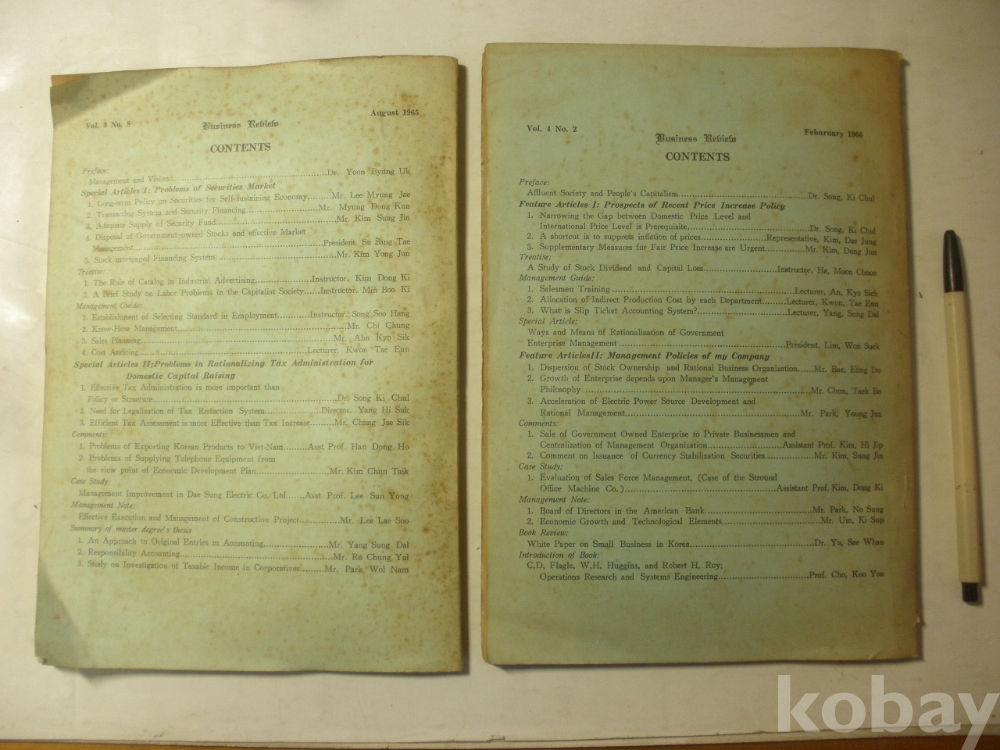 Vol. 3 No. 8
Business Review
August 1965
CONTENTS
Preface:
Management and Vision Dr. Yoon Byung Uk
Special Articles I: Problems of Securities Market
1. Long-term Policy on Securities for Self-Sustaining Economy......Mr. Lee Myung Jae
2. Transacting System and Security Financing......Mr. Myung Dong Kun
3. Adequate Supply of Security Fund......Mr. Kim Sung Jin
4. Disposal of Government-owned Stocks and effective Market
Management......President, Su Sang Tae
5. Stock mortgaged Financing System......Mr. Kim Yong Jun
Treatise:
1. The Role of Catalog in Industrial Advertising......Instructor, Kim Dong Ki
2. A Brief Study on Labor Problems in the Capitalist Society......Instructor, Min Boo Ki
Management Guide:
1. Establishment of Selecting Standard in Employment......Instructor, Song Soo Hang
2. Know-How Management......Mr. Chi Chung
3. Sales Planning......Mr. Ahn Kyo Sik
4. Cost Auditing......Lecturer, Kwon Tae Eun
Special Articles II: Problems in Rationalizing Tax Administration for
Domestic Capital Raising
1. Effective Tax Administration is more important than
Policy or Structure......Dr. Song Ki Chul
2. Need for Legalization of Tax Reduction System......Director, Yang Hi Suk
3. Efficient Tax Assessment is more Effective than Tax Increase......Mr. Chung Jae Sik
Comments:
1. Problems of Exporting Korean Products to Viet-Nam......Asst Prof. Han Dong Ho
2. Problems of Supplying Telephone Equipment from
the view point of Economic Development Plan......Mr. Kim Chun Taik
Case Study:
Management Improvement in Dae Sung Electric Co. Ltd......Asst Prof. Lee Sun Yong
Management Note:
Effective Execution and Management of Construction Project......Mr. Lee Lae Soo
Summary of master degree's thesis
1. An Approach to Original Entries in Accounting......Mr. Yang Sung Dal
2. Responsibility Accounting......Mr. Ro Chung Yul
3. Study on Investigation of Taxable Income in Corporatives......Mr. Park Wol Nam
Vol. 4 No. 2
Business Review
Feburuary 1966
CONTENTS
Preface:
Affluent Society and People's Capitalism......Dr. Song, Ki Chul
Feature Articles I: Prospects of Recent Price Increase Policy
1. Narrowing the Gap between Domestic Price Level and
International Price Level is Prerequisite......Dr. Song, Ki Chul
2. A shortcut is to suppress inflation of prices......Representative, Kim, Dae Jung
3. Supplementary Measures for Fair Price Increase are Urgent......Mr. Kim, Dong Jun
Treatise:
A Study of Stock Dividend and Capital Loss......Instructor, Ha, Moon Choon
Management Guide:
1. Salesmen Training......Lecturer, An, Kyo Sick
2. Allocation of Indirect Production Cost by each Department......Lecturer, Kwon, Tae Eun
3. What is Slip Ticket Accounting System?......Lecturer, Yang, Sung Dal
Special Article:
Ways and Means of Rationalization of Government
Enterprise Management......President, Lim, Won Suck
Feature ArticlesII: Management Policies of my Company
1. Dispersion of Stock Ownership and Rational Business Organisation......Mr. Bae, Eung Do
2. Growth of Enterprise depends upon Manager's Management
Philosophy......Mr. Chun, Taek Bo
3. Acceleration of Electric Power Source Development and
Rational Management......Mr. Park, Young Jun
Comments:
1. Sale of Government Owned Enterprise to Private Businessmen and
Centralization of Management Organisation......Assistant Prof. Kim, Hi Jip
2. Comment on Issuance of Currency Stabilisation Securities......Mr. Kim, Sang Jin
Case Study:
1. Evaluation of Sales Force Management, (Case of the Suround
Office Machine Co.)......Assistant Prof. Kim, Dong Ki
Management Note:
1. Board of Directors in the American Bank......Mr. Park, No Sang
2. Economic Growth and Technological Elements......Mr. Um, Ki Sup
Book Review:
White Paper on Small Business in Korea......Dr. Yu, See Whan
Introduction of Book:
C,D, Flagle, W,H, Huggins, and Robert H, Roy;
Operations Research and Systems Engineering......Prof. Cho, Koo Yon
kobay